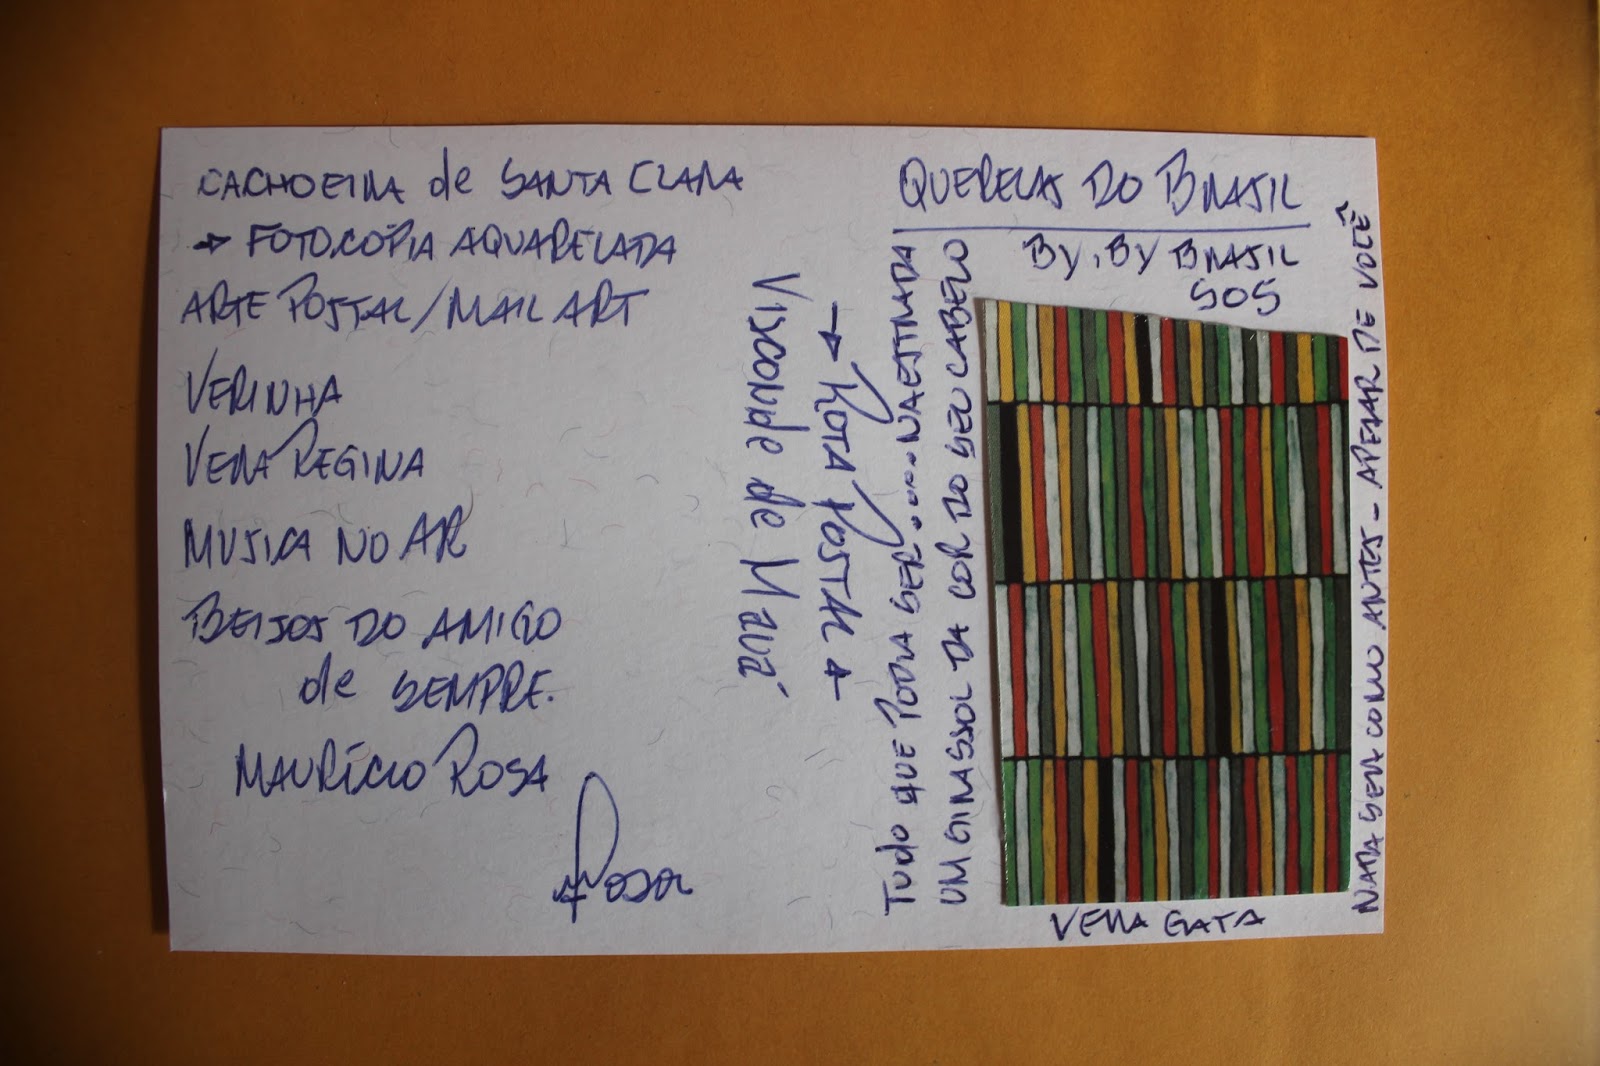 CACHOEIRA de SANTA CLARA
→ FOTOCÓPIA AQUARELADA
ARTE POSTAL/MAIL ART
VERINHA
VERA REGINA
MUSICA NO AR
BEIJOS DO AMIGO
de SEMPRE.
MAURÍCIO ROSA
Rosa
Visconde de Mauá
→ ROTA POSTAL →
Tudo que PODIA SER....... NA ESTRADA
UM GIRASSOL DA COR DO SEU CABELO
QUERELAS DO BRASIL
BY, BY BRASIL
SOS
VERA GATA
NADA SERA COMO ANTES - APESAR DE VOCÊ